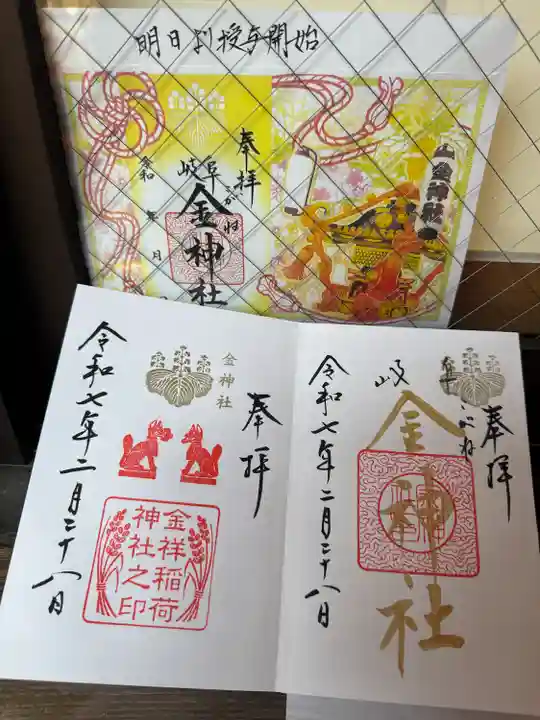 明日より授与開始
奉拝
岐阜
こがね
金神社
令和
年
月
金神社
金神社
奉拝
令和七年二月二十八日
金祥稲荷
神社之印
奉拝
岐阜
こがね
金神社
令和七年二月二十八日